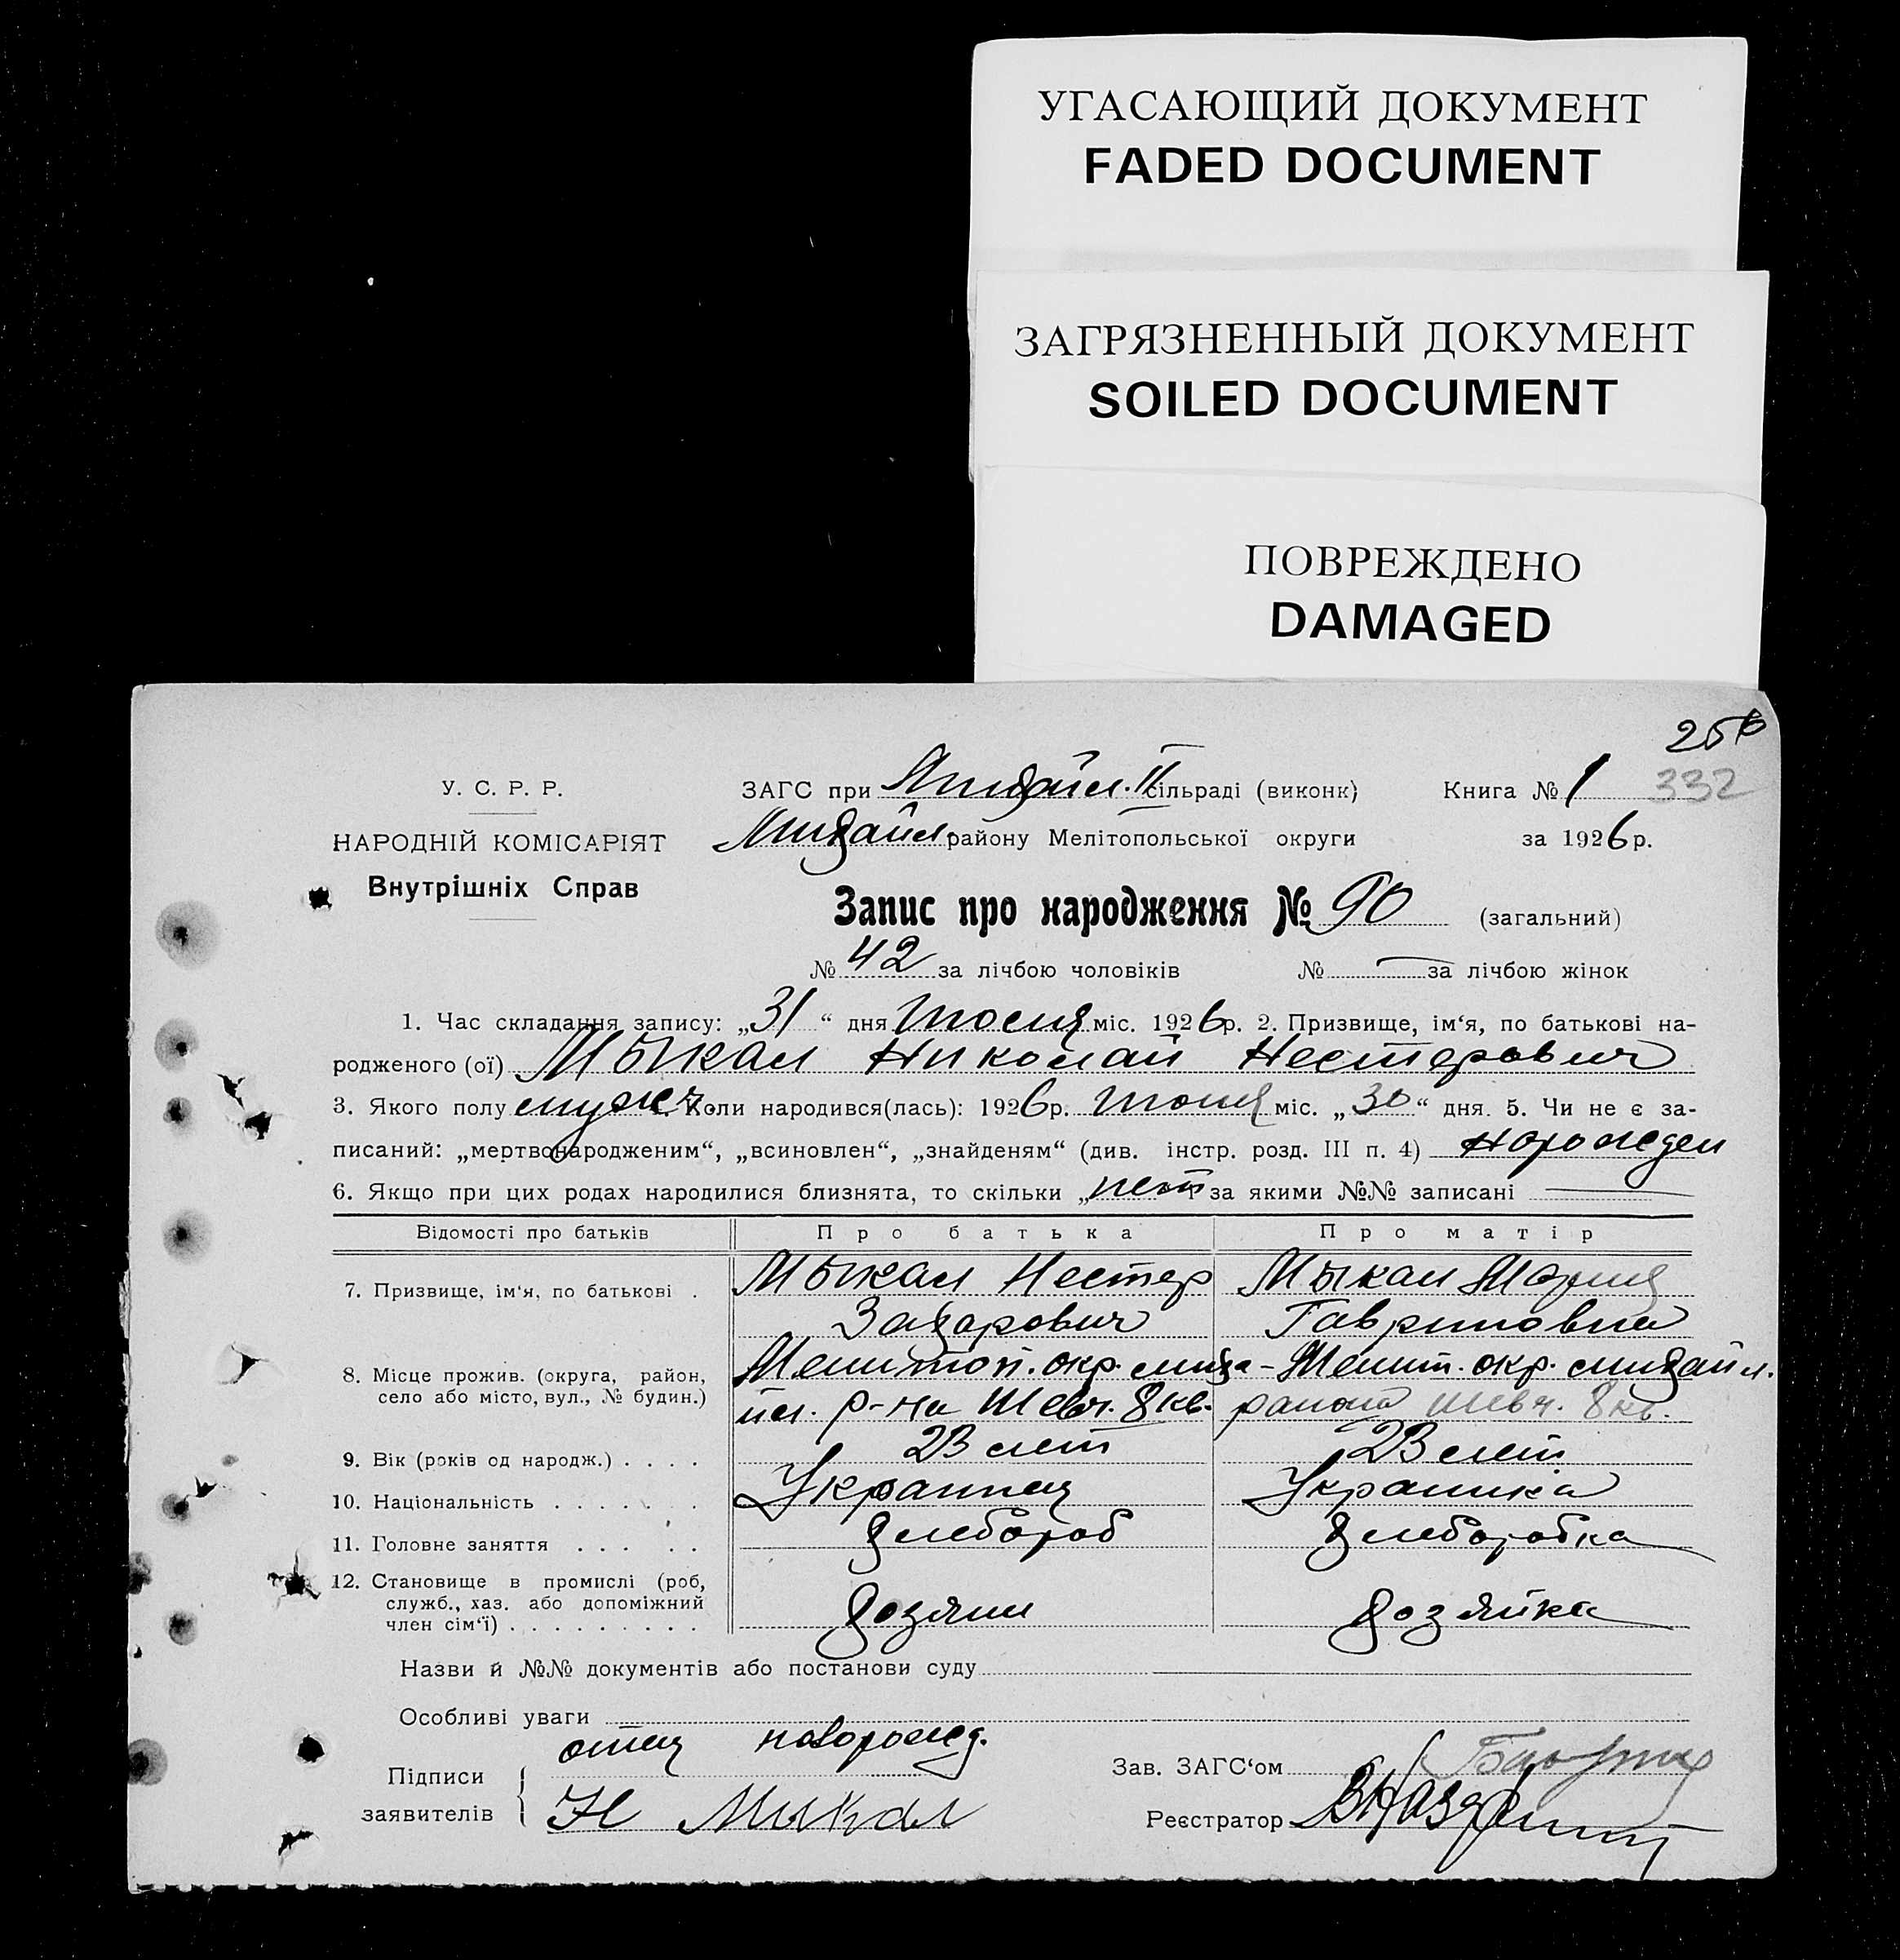 УГАСАЮЩИЙ ДОКУМЕНТ
FADED DOCUMENT
ЗАГРЯЗНЕННЫЙ ДОКУМЕНТ
SOILED DOCUMENT
ПОВРЕЖДЕНО
DAMAGED
332
У. С. Р. Р.
ЗАГС при Михайл. II сільраді (виконк) Книга № 1
НАРОДНІЙ КОМІСАРІЯТ
Михайл. району Мелітопольської округи за 1926 р.
Внутрішніх Справ
Запис про народження № 90 (загальний)
№ 42 за лічбою чоловіків № — за лічбою жінок
1. Час складання запису: „31“ дня міс. 1926 р. 2. Призвище, ім‘я, по батькові на-
родженого (ої) Мыкал Николай Нестерович
3. Якого полу мужч. Коли народився(лась): 1926 р. міс. „30“ дня. 5. Чи не є за-
писаний: „мертвонародженим“, „всиновлен“, „знайденям“ (див. інстр. розд. III п. 4) нарожден
6. Якщо при цих родах народилися близнята, то скільки „нет за якими №№ записані —
Відомості про батьків Про батька Про матір
7. Призвище, ім‘я, по батькові . Мыкал Нестер Мыкал Мария
Захарович Гавриловна
8. Місце прожив. (округа, район, Мелитоп. окр. миха- Мелит. окр. михайл.
село або місто, вул., № будин.) йл. р-на Шевч. 8 кв. района шевч. 8 кв.
9. Вік (років од народж.) . . . . 23 лет 23 лет
10. Національність . . . . . . Украинец Украинка
11. Головне заняття . . . . . хлебороб хлеборобка
12. Становище в промислі (роб,
служб., хаз. або допоміжний хозяин хозяйка
член сім‘ї) . . . . . . . . .
Назви й №№ документів або постанови суду
Особливі уваги
отец новорожд.
Підписи Зав. ЗАГС‘ом
заявителів Н Мыкал Реєстратор